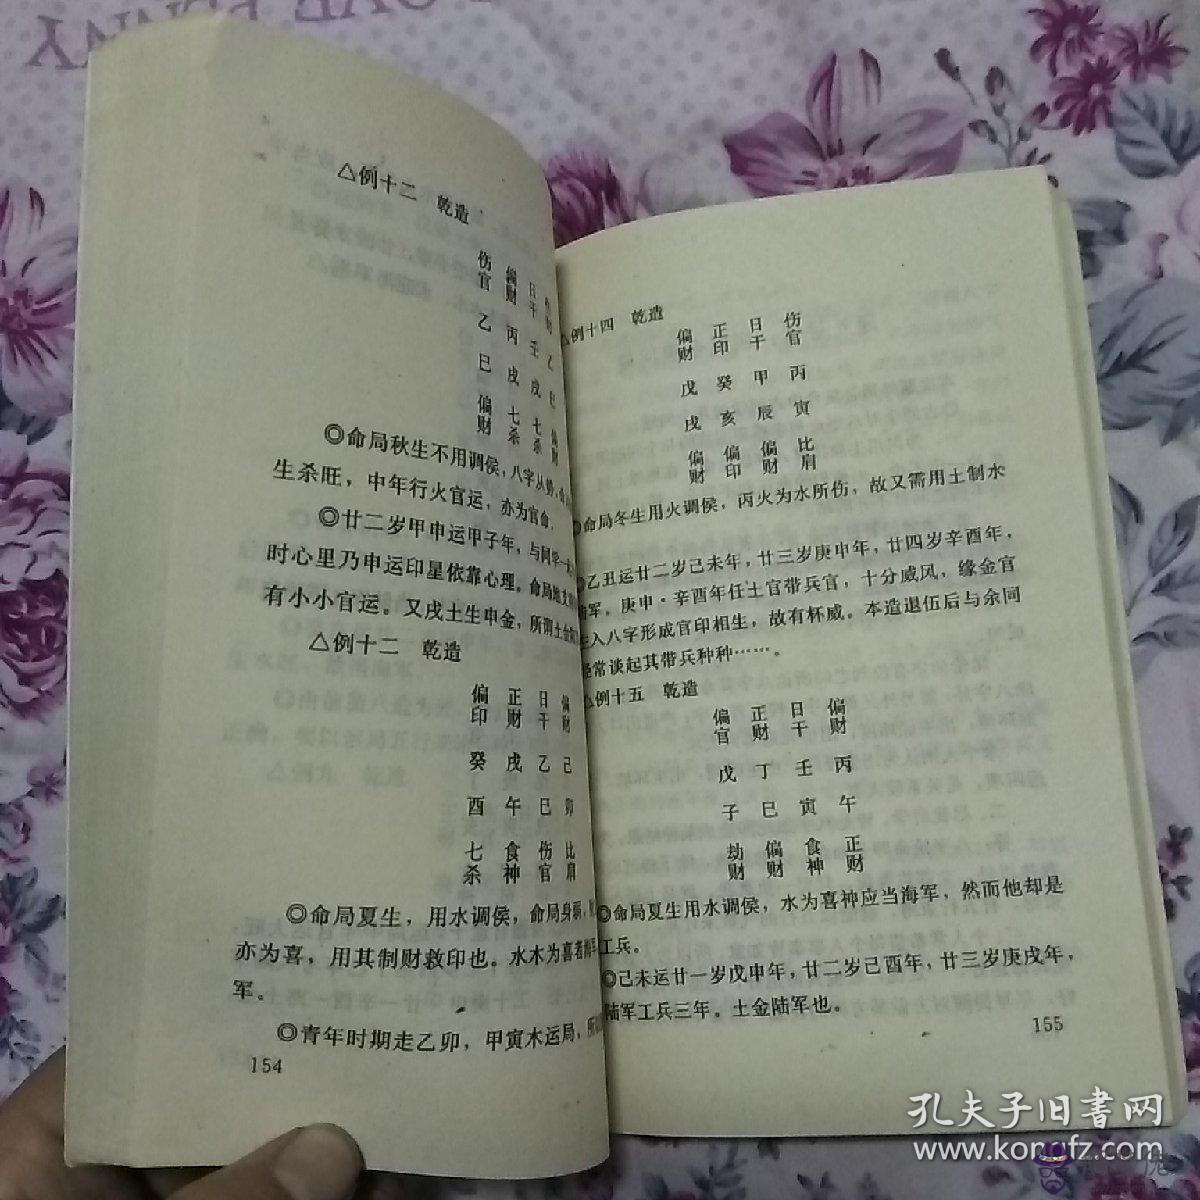 △例十二 乾造
伤 偏 日
官 财 干
乙 丙 壬 乙
巳 戌 戌 巳
偏 七 七 偏
财 杀 杀 财
◎命局秋生不用调侯，八字从
生杀旺，中年行火官运，亦为官命。
◎廿二岁甲申运甲子年，与同学一
时心里乃申运印星依靠心理。命局地支
有小小官运。又戌土生申金，所谓土金
△例十二 乾造
偏 正 日 偏
印 财 干 财
癸 戌 乙 己
酉 午 巳 卯
七 食 伤 比
杀 神 官 肩
◎命局夏生，用水调侯，命局身弱，
亦为喜，用其制财救印也。水木为喜者
军。
◎青年时期走乙卯，甲寅木运局，所
154
△例十四 乾造
偏 正 日 伤
财 印 干 官
戊 癸 甲 丙
戌 亥 辰 寅
偏 偏 偏 比
财 印 财 肩
◎命局冬生用火调侯，丙火为水所伤，故又需用土制水
◎乙丑运廿二岁己未年，廿三岁庚申年，廿四岁辛酉年，
陆军。庚申·辛酉年任士官带兵官，十分威风，缘金官
入八字形成官印相生，故有杯威。本造退伍后与余同
经常谈起其带兵种种……。
△例十五 乾造
偏 正 日 偏
官 财 干 财
戊 丁 壬 丙
子 巳 寅 午
劫 偏 食 正
财 财 神 财
◎命局夏生用水调侯，水为喜神应当海军，然而他却是
工兵。
◎己未运廿一岁戊申年，廿二岁己酉年，廿三岁庚戌年，
陆军工兵三年。土金陆军也。
155
孔夫子旧書网
www.kongfz.com